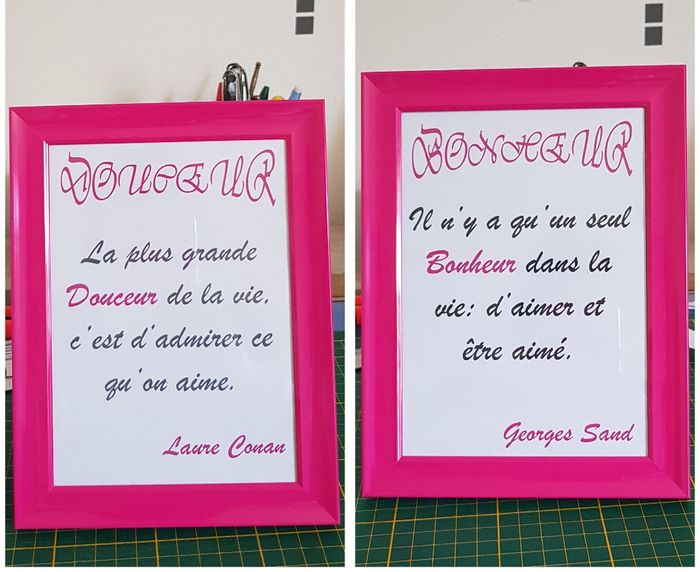 DOUCEUR
La plus grande
Douceur de la vie,
c'est d'admirer ce
qu'on aime.
Laure Conan
BONHEUR
Il n'y a qu'un seul
Bonheur dans la
vie: d'aimer et
être aimé.
Georges Sand